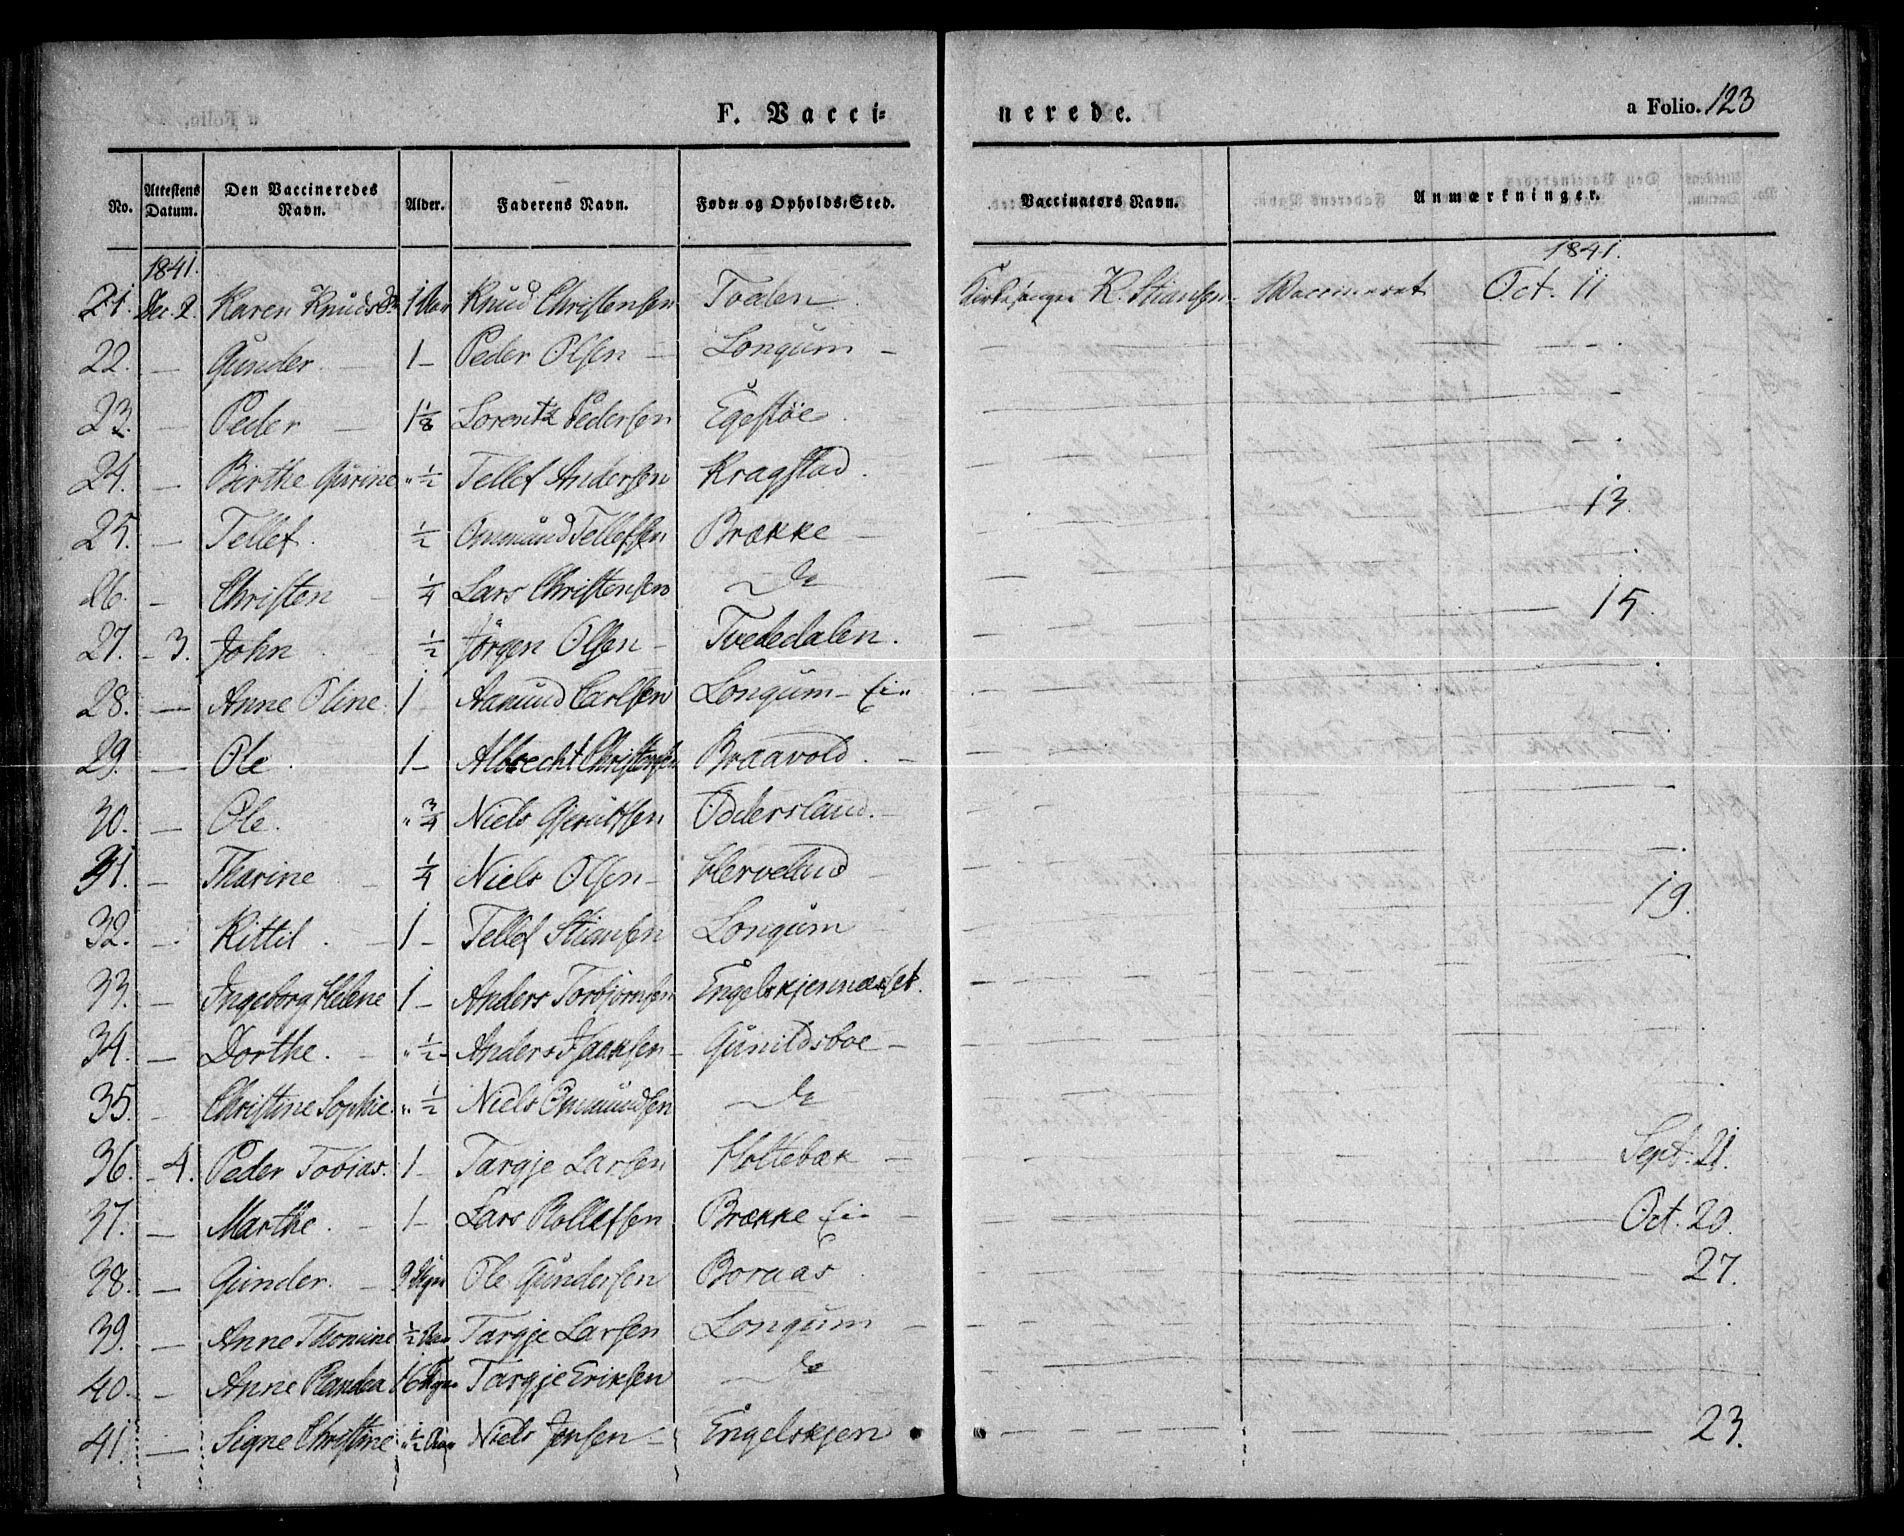 F. Vacci-
nerede.
a Folio. 123
No. Attestens Datum. Den Vaccineredes Navn. Alder. Faderens Navn. Føde- og Opholds-Sted. Vaccinators Navn. Anmærkninger.
1841. 1841.
21. Dec. 2. Karen Knudsdr 1 Aar Knud Christensen Tveden Kirkesanger K. Stiansen Vaccineret Oct. 11
22. — Gunder. — 1 — Peder Olsen — Longum —
23. — Peder — 1 1/8 Lorentz Pedersen Egestøe.
24. — Birthe Gurine " 1/2 Tellef Andersen Kragstad.
25. — Tellef. 1/2 Ommund Tellefsen Brække — 13.
26. — Christen — 1/4 Lars Christensen — Do
27. — 3. John — 1/2 Jørgen Olsen — Tvededalen. 15.
28. — Anne Oline 1 Aamund Carlsen Longum — Ei
29. — Ole. 1 — Albrecht Christensen Braavold. —
30. — Ole. " 3/4 Niels Odersland. —
31. — Tharine — 1/4 Niels Olsen — Herveland —
32. — Kittil. — 1 — Tellef Stiansen Longum 19.
33. — Ingeborg Helene 1 — Anders Torbjørnsen Engelskjernnæset.
34. — Dorthe. — " 1/2 — Anders Isaksen — Gunildsboe —
35. — Christine Sophie. " 1/2 Niels Ommundsen — Do
36. — 4. Peder Tobias. 1 — Targje Larsen Holtebæk — Sept. 21.
37. — Marthe. — 1 — Lars Rollefsen Brække Ei — Oct. 20.
38. — Gunder. — 9 Ole Gundersen Boraas. 27.
39. — Anne Thomine 1/2 Aar Targje Larsen Longum —
40. — Anne Randea 16 Targje Eriksen — Do
41. — Signe Christine " 1/2 Aar Niels Jensen — Engelskjen 23.